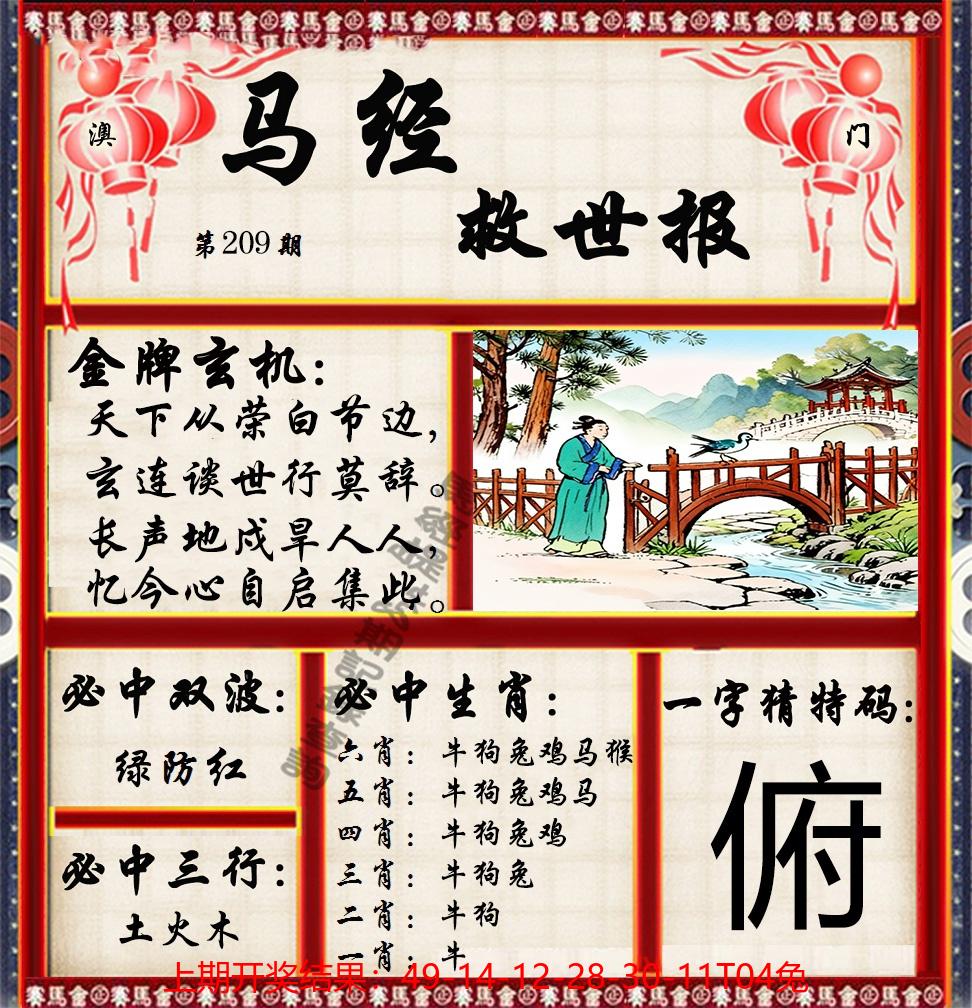 澳
门
马经
救世报
第209期
金牌玄机:
天下从荣白节边,
玄连谈世行莫辞。
长声地成旱人人,
忆今心自启集此。
必中双波:
绿防红
必中三行:
土火木
必中生肖:
六肖: 牛狗兔鸡马猴
五肖: 牛狗兔鸡马
四肖: 牛狗兔鸡
三肖: 牛狗兔
二肖: 牛狗
一肖: 牛
一字猜特码:
俯
上期开奖结果:49-14-12-28-30-11T04兔